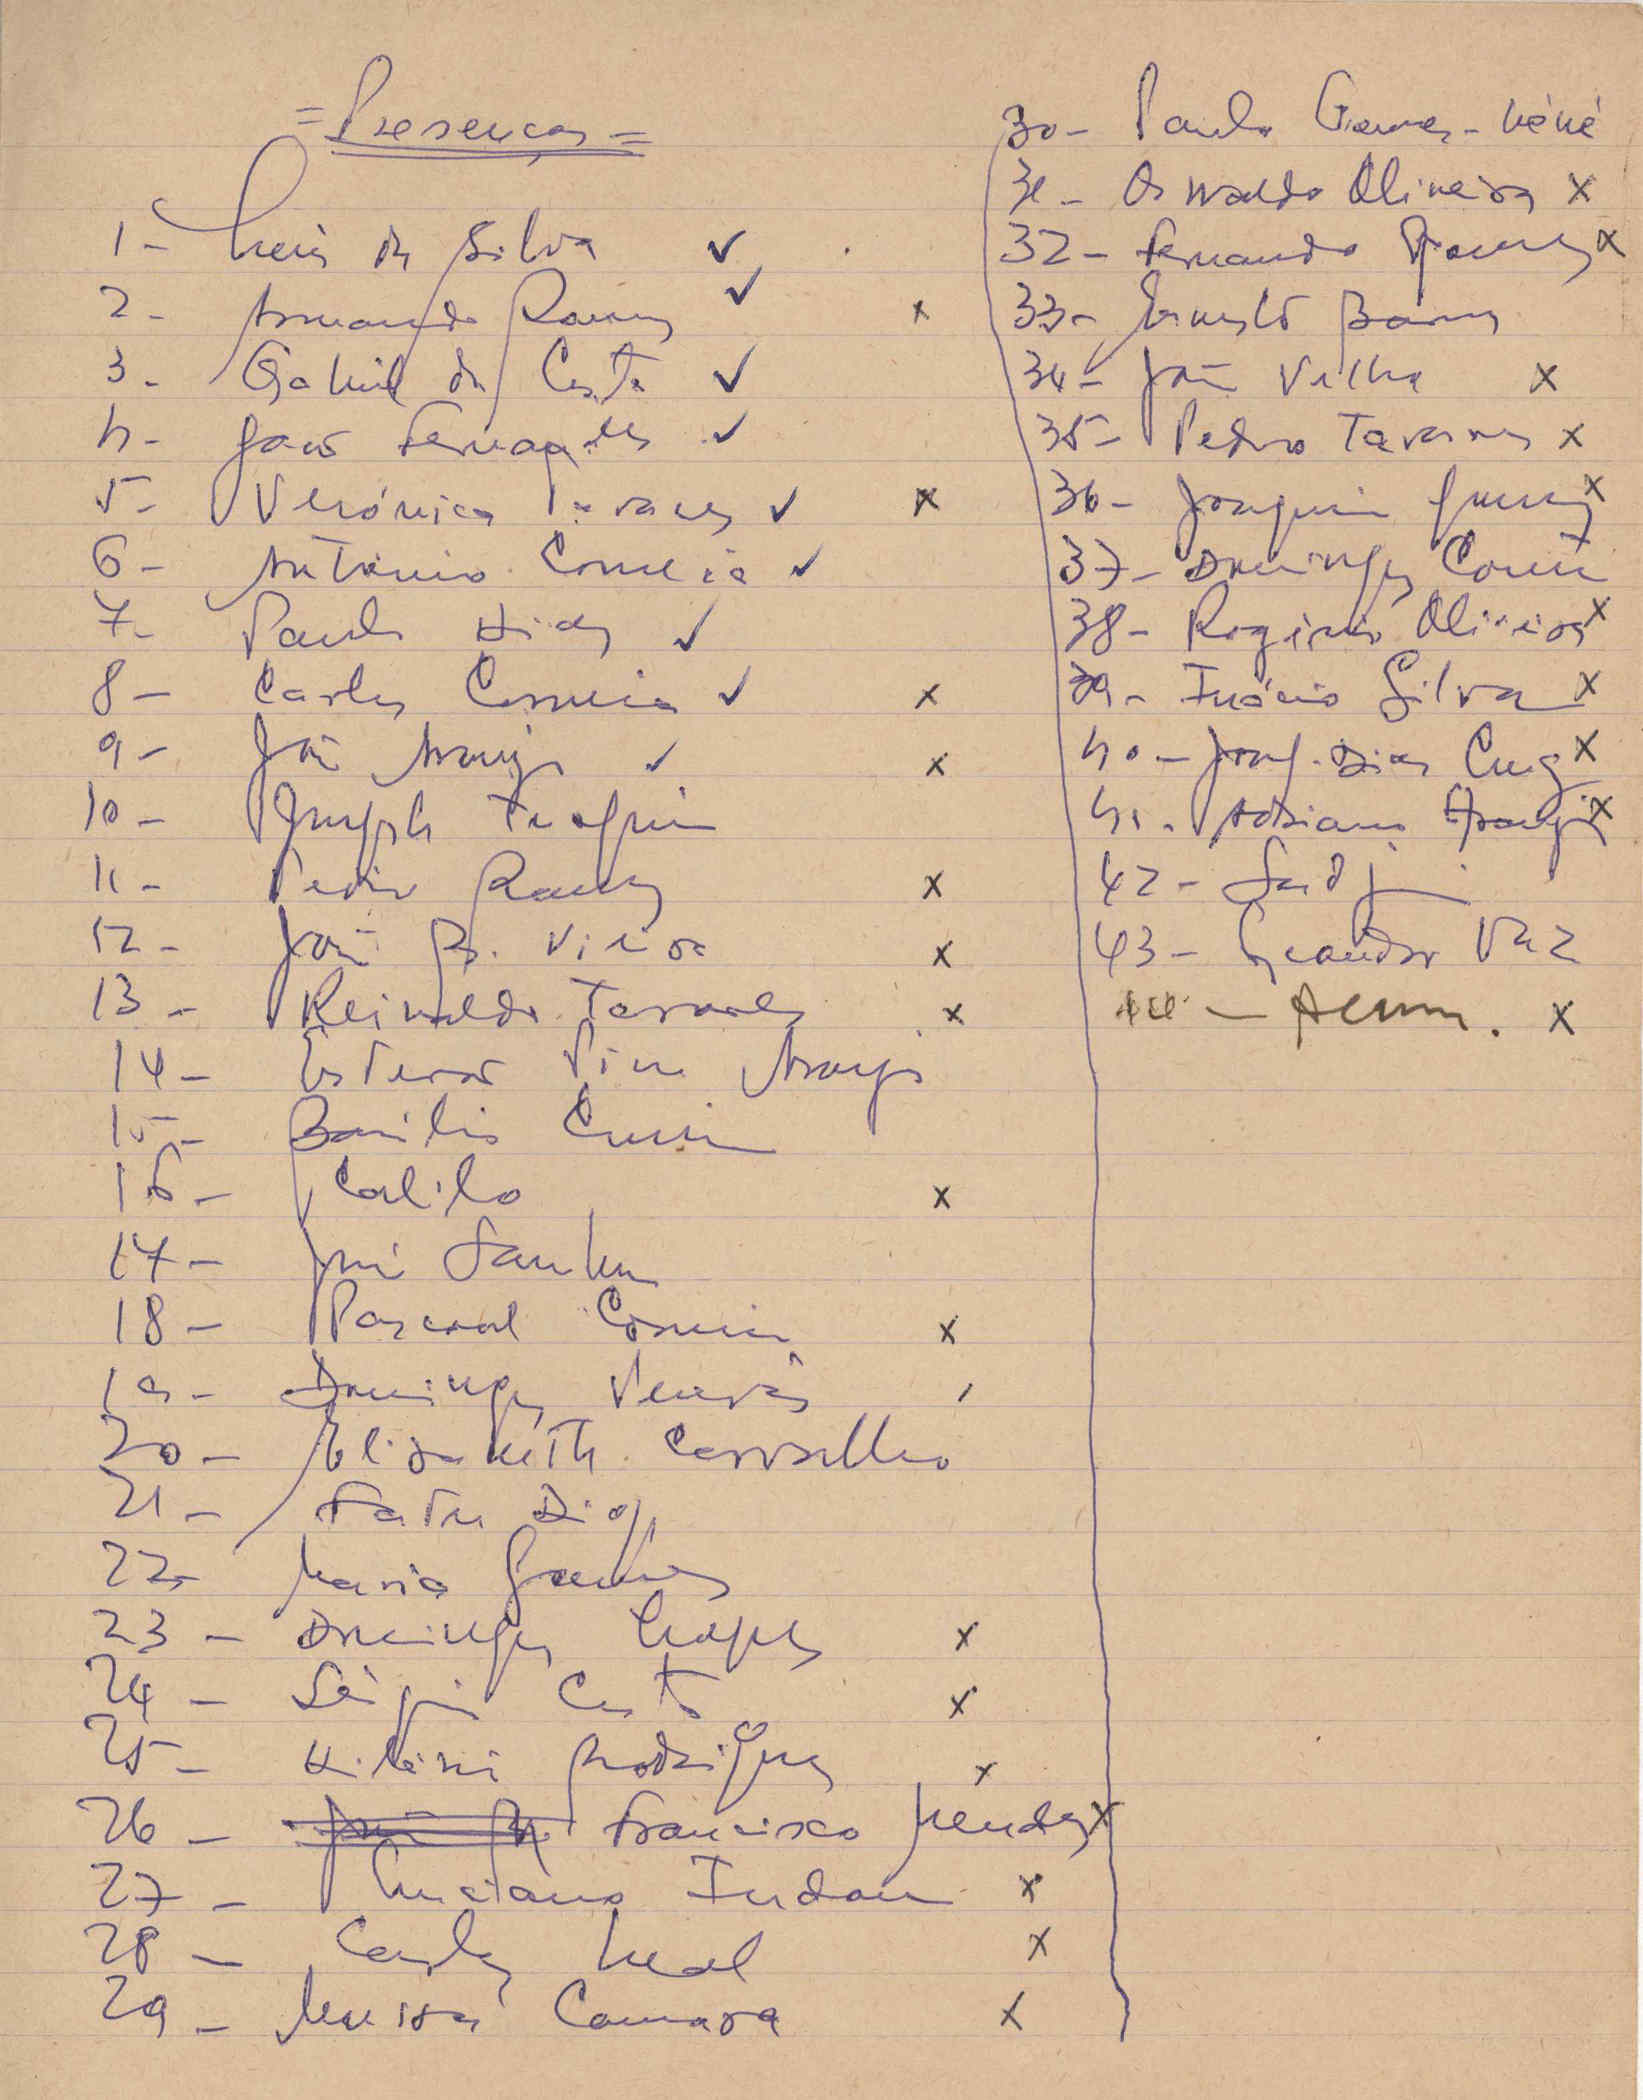 = Presenças =
1 - Luis da Silva ✓
2 - Armando Ramos ✓ x
3 - Gabriel da Costa ✓
4 - João Fernandes ✓
5 - Verónica Tavares ✓ x
6 - António Correia ✓
7 - Paulo Dias ✓
8 - Carlos Correia ✓ x
9 - João Araujo ✓ x
10 - Joseph
11 - Pedro Ramos x
12 - João B. Vieira x
13 - Reinaldo Tavares x
14 - Pina Araujo
15 - Basilio
16 - Calilo x
17 - José Sanha
18 - Pascoal Correia x
19 - Domingos
20 - Elisabeth Carvalho
21 - Fatu Diop
22 - Maria Gomes
23 - Domingos Lopes x
24 - Sérgio Costa x
25 - Hilário Rodrigues x
26 - Francisco Mendes x
27 - Luciano Indam x
28 - Carlos Leal x
29 - Mussá Camara x
30 - Paulo Gomes - Néné
31 - Oswaldo Oliveira x
32 - Fernando Gomes x
33 - Ernesto Barros
34 - João Velha x
35 - Pedro Tavares x
36 - Joaquim x
37 - Domingos
38 - Rogério Oliveira x
39 - Inácio Silva x
40 - Dias x
41 - Adriano Araujo x
42 -
43 - Leandro Vaz
44 - x